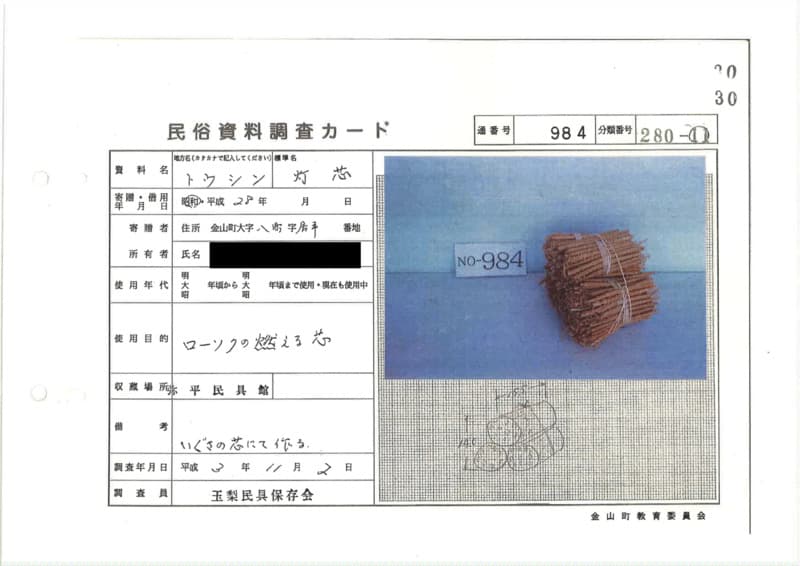 30
30
民俗資料調査カード
通番号 984 分類番号 280-11
資料名 地方名(カタカナで記入してください) 標準名
トウシン 灯芯
寄贈・借用年月日 昭和・平成 28年 月 日
寄贈者 住所 金山町大字 八町 字 居平 番地
所有者 氏名
使用年代 明大昭 年頃から 明大昭 年頃まで使用・現在も使用中
使用目的 ローソクの燃える芯
収蔵場所 弥平民具館
備考 いぐさの芯にて作る.
調査年月日 平成 3年 11月 2日
調査員 玉梨民具保存会
NO-984
15.5
14.5
金山町教育委員会